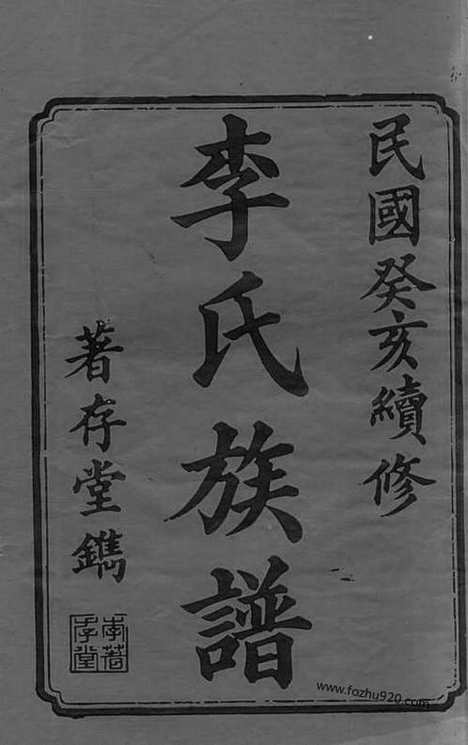 民國癸亥續修
李氏族譜
著存堂鐫
李著存堂
www.fozhu920.com